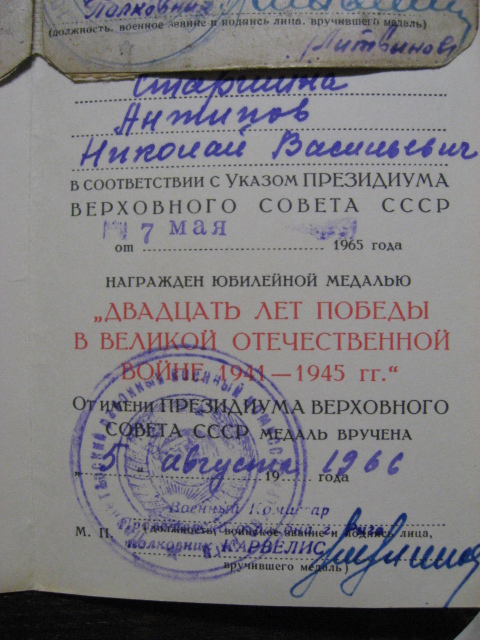 Полковник
(должность, военное звание и подпись лица, вручившего медаль)
/Литвинов/
Старшина
Антипов
Николай Васильевич
В СООТВЕТСТВИИ С УКАЗОМ ПРЕЗИДИУМА
ВЕРХОВНОГО СОВЕТА СССР
от 7 мая 1965 года
НАГРАЖДЕН ЮБИЛЕЙНОЙ МЕДАЛЬЮ
„ДВАДЦАТЬ ЛЕТ ПОБЕДЫ
В ВЕЛИКОЙ ОТЕЧЕСТВЕННОЙ
ВОЙНЕ 1941—1945 гг.“
ОТ ИМЕНИ ПРЕЗИДИУМА ВЕРХОВНОГО
СОВЕТА СССР МЕДАЛЬ ВРУЧЕНА
„5“ августа 1966 19 года
Военный Комиссар
г. Рига
М. П. (должность, воинское звание и подпись лица,
полковник КАРВЕЛИС
вручившего медаль)